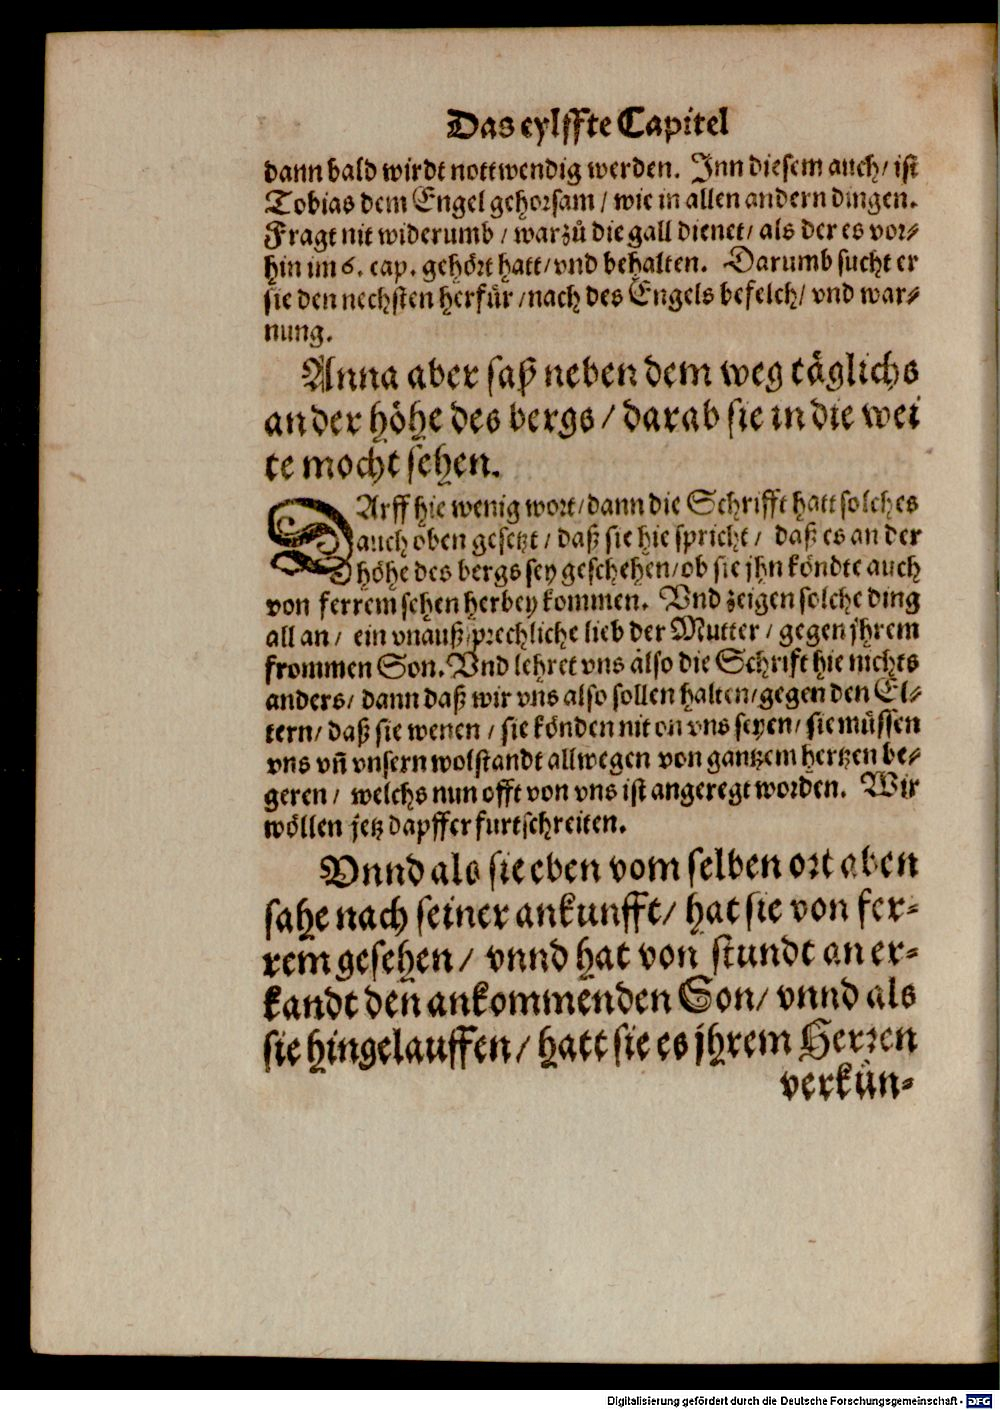 Das eylffte Capitel
dann bald wirdt nottwendig werden. Inn diesem auch/ ist
Tobias dem Engel gehorsam / wie in allen andern dingen.
Fragt nit widerumb / warzů die gall dienet/ als der es vor⸗
hin im 6. cap. gehört hatt/ vnd behalten. Darumb sucht er
sie den nechsten herfür / nach des Engels befelch/ vnd war⸗
nung.
Anna aber saß neben dem weg täglichs
an der höhe des bergs / darab sie in die wei
te mocht sehen.
DArff hie wenig wort/ dann die Schrifft hatt solches
auch oben gesetzt / daß sie hie spricht / daß es an der
höhe des bergs sey geschehen/ ob sie jhn köndte auch
von ferrem sehen herbey kommen. Vnd zeigen solche ding
all an / ein vnaußsprechliche lieb der Mutter / gegen jhrem
frommen Son. Vnd lehret vns also die Schrift hie nichts
anders/ dann daß wir vns also sollen halten/ gegen den El⸗
tern/ daß sie wenen / sie könden nit on vns seyen/ sie müssen
vns vñ vnsern wolstandt allwegen von gantzem hertzen be⸗
geren / welchs nun offt von vns ist angeregt worden. Wir
wöllen jetz dapffer furtschreiten.
Vnnd als sie eben vom selben ort aben
sahe nach seiner ankunfft/ hat sie von fer⸗
rem gesehen / vnnd hat von stundt an er⸗
kandt den ankommenden Son/ vnnd als
sie hingelauffen / hatt sie es jhrem Herren
verkün⸗
Digitalisierung gefördert durch die Deutsche Forschungsgemeinschaft - DFG